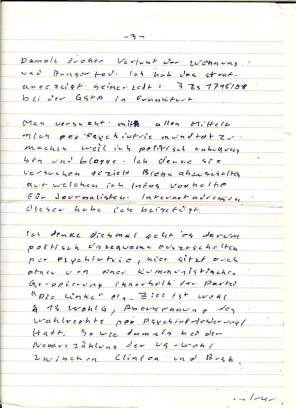 - 3 -
Damals drohte Verlust der Wohnung
und Hungertod. Ich hab das strat.
angezeigt seinerzeit: 3 Zs 1795/08
bei der GStA in Frankfurt.
Man versucht mit allen Mitteln
mich per Psychiatrie mundtot zu
machen weil ich politisch unbequem
bin und blogge. Ich denke sie
versuchen gezielt Blogs abzuschalten
auf welchen ich Infos vorhalte
für Journalisten. Internetadressen
dieser habe ich beigefügt.
Ich denke diesmal geht es darum
politisch Unbequeme auszuschalten
per Psychiatrie, hier sitzt auch
etwas von einer kommunistischen
Gruppierung innerhalb der Partei
"Die Linke" ein. Ziel ist wohl
§ 13 WahlG, Aberkennung des
Wahlrechts per Psychiatrisierung/
Haft. So wie damals bei der
Neuauszählung der US-Wahl
zwischen Clinton und Bush.